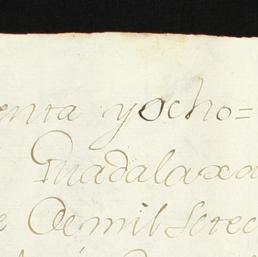 enta yocho=
Guadalaxa
e De mil setec